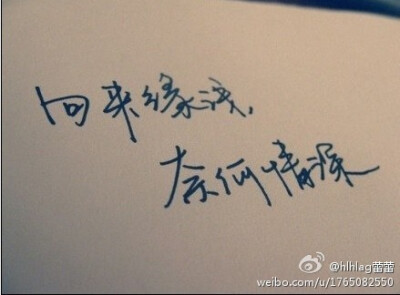 向来缘浅，
奈何情深
@hlhlag蕾蕾
weibo.com/u/1765082550